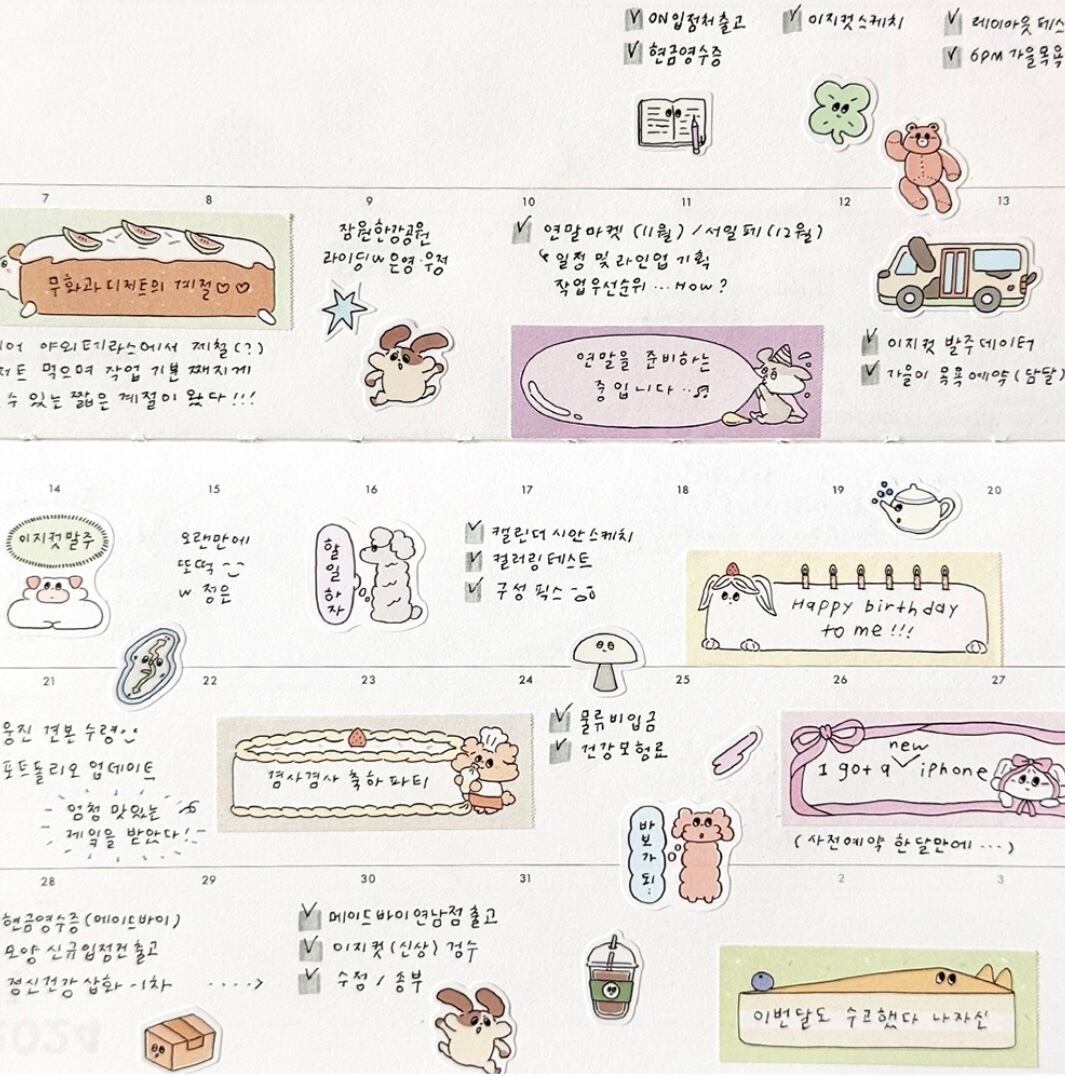 ON입점처출고
이지컷스케치
레이아웃 테스
현금영수증
6PM 가을목욕
7
8
9
10
11
12
13
무화과 디저트의 계절♡♡
잠원한강공원
라이딩 w 은영·우정
연말마켓 (11월) / 서일페 (12월)
일정 및 라인업 기획
작업우선순위 … How?
연말을 준비하는
중입니다 ··♬
이지컷 발주데이터
가을이 목욕예약 (담달)
야외테라스에서 제철(?)
먹으며 작업 기분 째지게
수 있는 짧은 계절이 왔다!!!
14
15
16
17
18
19
20
이지컷발주
오랜만에
또떡
w 정은
할일하자
캘린더 시안스케치
컬러링테스트
구성 픽스
Happy birthday
to me!!!
21
22
23
24
25
26
27
웅진 견본 수령
포트폴리오 업데이트
엄청 맛있는
케익을 받았다!
겸사겸사 축하파티
물류비입금
건강보험료
바보가 되;
new
I got a iPhone
(사전예약 한달만에 ···)
28
29
30
31
2
3
현금영수증 (메이드바이)
모양 신규입점건출고
정신건강 삽화 -1차 ····>
메이드바이연남점출고
이지컷(신상) 검수
수정 / 종부
이번달도 수고했다 나자신
2024